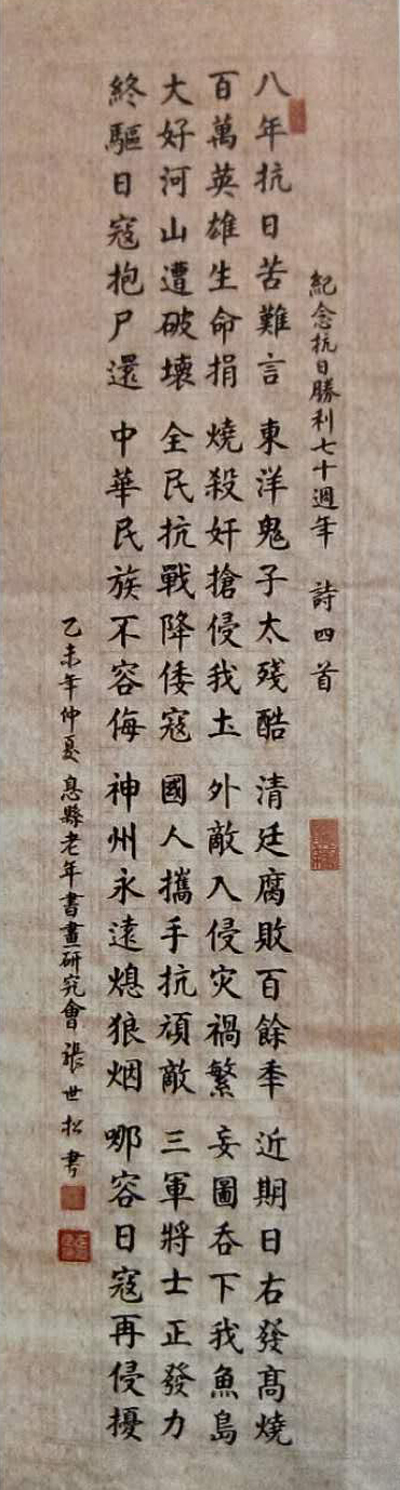 紀念抗日勝利七十週年 詩四首
八年抗日苦難言 東洋鬼子太殘酷 清廷腐敗百餘秊 近期日右發髙燒
百萬英雄生命捐 燒殺奸搶侵我土 外敵入侵灾禍繁 妄圖吞下我魚島
大好河山遭破壞 全民抗戰降倭寇 國人攜手抗頑敵 三軍將士正發力
終驅日寇抱尸還 中華民族不容侮 神州永遠熄狼烟 哪容日寇再侵擾
乙未年仲夏 息縣老年書畫研究會 張世松書